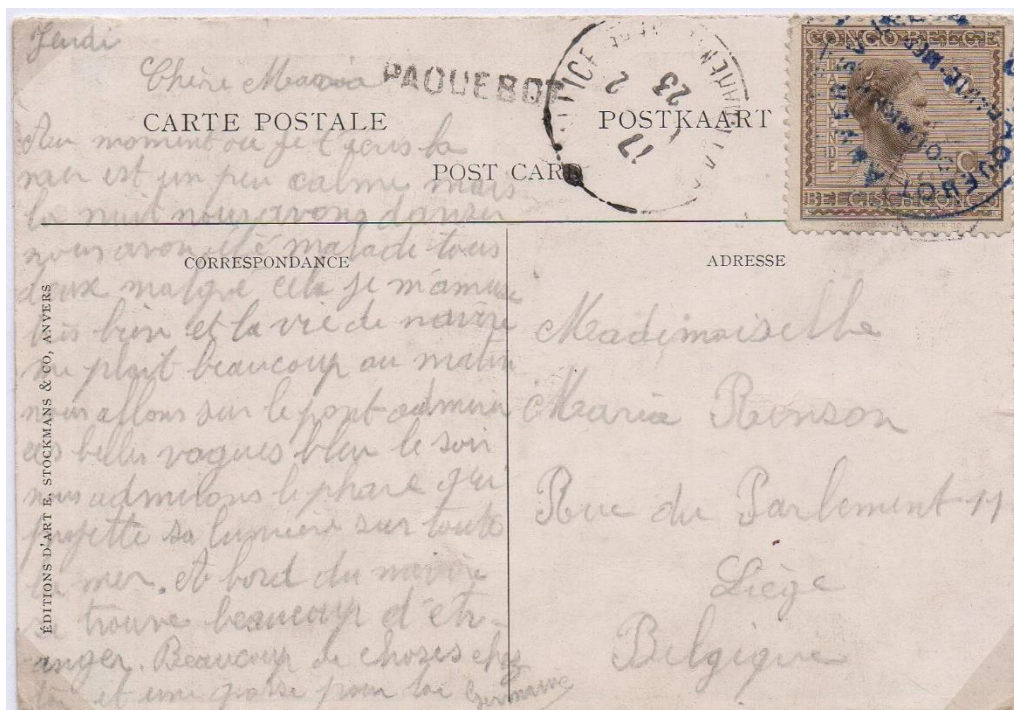 Jeudi
Chère Maria
PAQUEBOT
CARTE POSTALE
POSTKAART
POST CARD
17
2
23
CONGO BELGE
BELGISCH CONGO
PAQUEBOT
Au moment où je t'ecris la
mer est un peu calme mais
la nuit nous avons danser
nous avon été malade tous
deux malgré cela je m'amuse
très bien et la vie de navire
me plait beaucoup au matin
nous allons sur le pont admirer
ces belles vagues bleu le soir
nous admirons le phare qui
projette sa lumière sur toute
la mer. A bord du navire
se trouve beaucoup d'étr-
anger. Beaucoup de choses chez
toi et une grosse pour toi Germaine
CORRESPONDANCE
ADRESSE
Mademoiselle
Maria Renson
Rue du Parlement 11
Liège
Belgique
ÉDITIONS D'ART E. STOCKMANS & CO, ANVERS